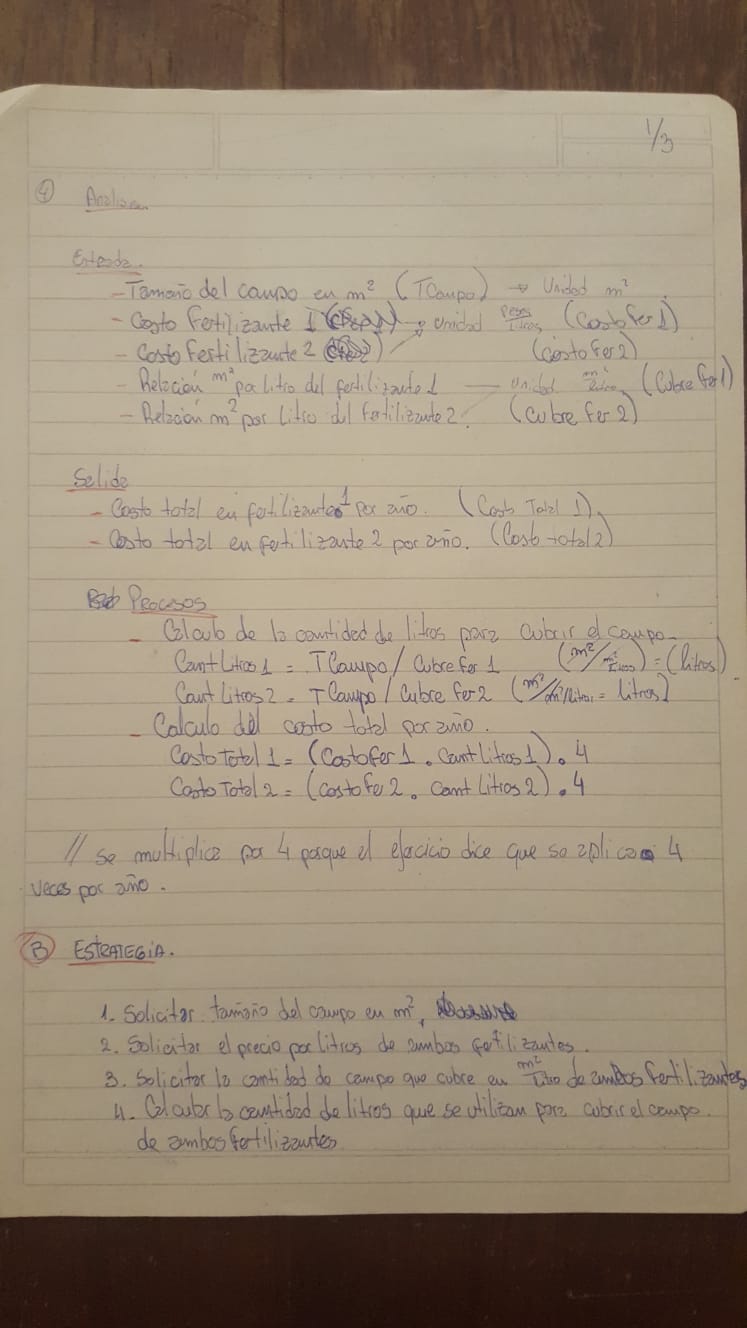 1/3
4 Analisis
Entrada.
- Tamaño del campo en m² (TCampo) → Unidad m²
- Costo Fertilizante 1 → Unidad Pesos/Litros (CostoFer1)
- Costo Fertilizante 2 (CostoFer2)
- Relación m² por litro del fertilizante 1 — Unidad m²/Litro (CubreFer1)
- Relación m² por litro del fertilizante 2. (CubreFer2)
Salida
- Costo total en fertilizante 1 por año. (Costo Total 1)
- Costo total en fertilizante 2 por año. (Costo total 2)
Procesos
- Calculo de la cantidad de litros para cubrir el campo
CantLitros1 = TCampo / CubreFer1 (m²/m²/Litros) = (litros)
CantLitros2 = TCampo / CubreFer2 (m²/m²/litros = litros)
- Calculo del costo total por año.
CostoTotal1 = (CostoFer1 . CantLitros1) . 4
CostoTotal2 = (CostoFer2 . CantLitros2) . 4
// Se multiplica por 4 porque el ejercicio dice que se aplica 4
veces por año.
B ESTRATEGIA.
1. Solicitar tamaño del campo en m²,
2. Solicitar el precio por litros de ambos fertilizantes.
3. Solicitar la cantidad de campo que cubre en m²/Litro de ambos fertilizantes
4. Calcular la cantidad de litros que se utilizan para cubrir el campo.
de ambos fertilizantes